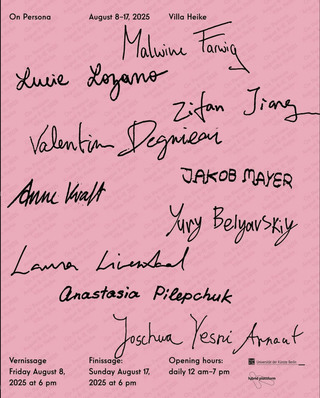 On Persona August 8–17, 2025 Villa Heike
Malwine Farwig
Lucie Lozano
Zifan Jiang
Valentin Degnieai
JAKOB MAYER
Anne Kraft
Yury Belyavskiy
Laura
Anastasia Pilepchuk
Joschua Yesni Arnaut
Vernissage Finissage: Opening hours:
Friday August 8, Sunday August 17, daily 12 am–7 pm
2025 at 6 pm 2025 at 6 pm
Universität der Künste Berlin